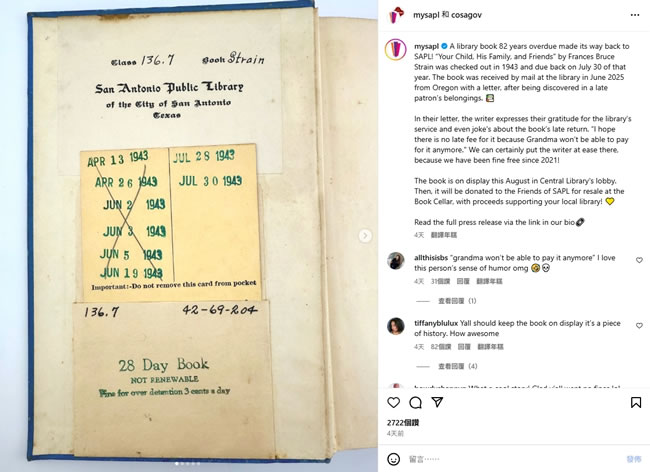 Class 136.7 Book Strain
San Antonio Public Library
of the City of San Antonio
Texas
APR 13 1943
APR 26 1943
JUN 2 1943
JUN 3 1943
JUN 5 1943
JUN 19 1943
JUL 28 1943
JUL 30 1943
Important:-Do not remove this card from pocket
136.7 42-69-204
28 Day Book
NOT RENEWABLE
Fine for over detention 3 cents a day
mysapl 和 cosagov
mysapl A library book 82 years overdue made its way back to
SAPL! "Your Child, His Family, and Friends" by Frances Bruce
Strain was checked out in 1943 and due back on July 30 of that
year. The book was received by mail at the library in June 2025
from Oregon with a letter, after being discovered in a late
patron's belongings.
In their letter, the writer expresses their gratitude for the library's
service and even joke's about the book's late return. "I hope
there is no late fee for it because Grandma won't be able to pay
for it anymore." We can certainly put the writer at ease there,
because we have been fine free since 2021!
The book is on display this August in Central Library's lobby.
Then, it will be donated to the Friends of SAPL for resale at the
Book Cellar, with proceeds supporting your local library!
Read the full press release via the link in our bio
4天 翻譯年糕
allthisisbs "grandma won't be able to pay it anymore" I love
this person's sense of humor omg
4天 31個讚 回覆 翻譯年糕
查看回覆 (1)
tiffanyblulux Yall should keep the book on display it's a piece
of history. How awesome
4天 82個讚 回覆 翻譯年糕
查看回覆 (4)
2722個讚
4天前
留言……
發佈